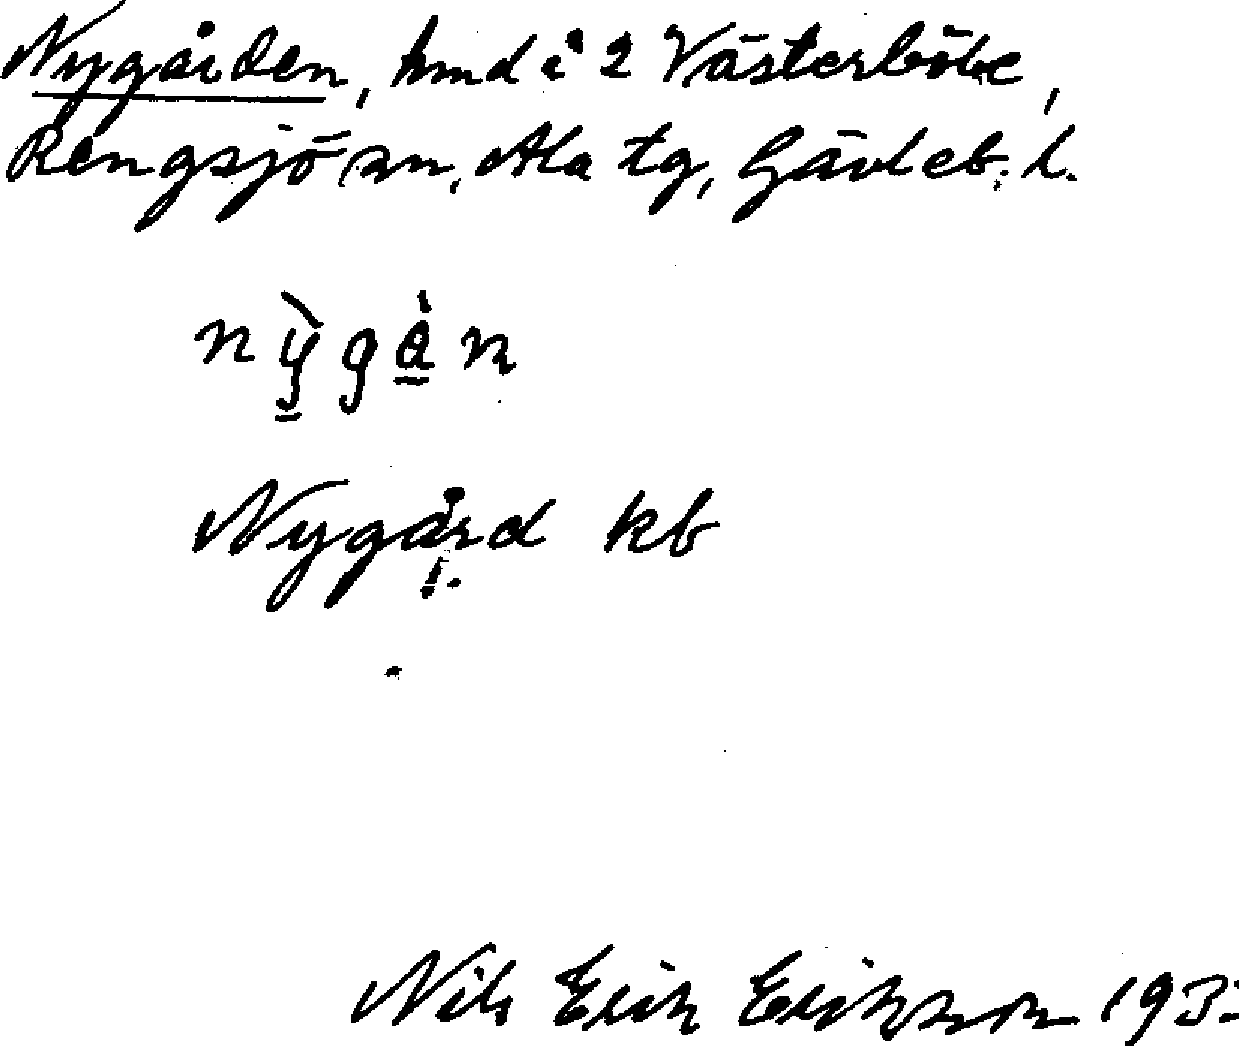 Nygården, hmd i 2 Västerböle,
Rengsjö sn, Ala tg, Gävleb. l.
nỳgȧ̀n
Nygård kb
Nils Erik Eriksson 193